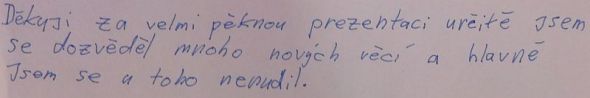 Děkuji za velmi pěknou prezentaci určitě jsem
se dozvěděl mnoho nových věcí a hlavně
Jsem se u toho nenudil.